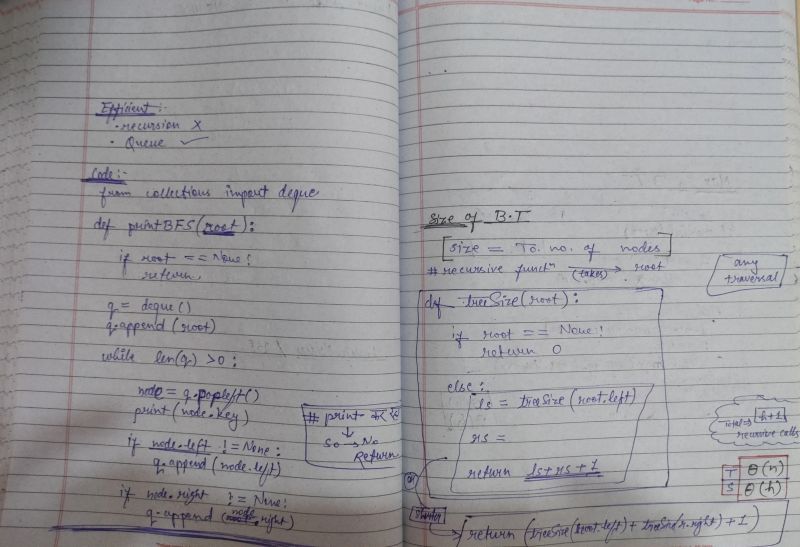 Efficient:-
• recursion X
• Queue ✓
Code:-
from collections import deque
def printBFS(root):
if root == None:
return
q = deque()
q.append(root)
while len(q) > 0:
node = q.popleft()
print(node.key)
if node.left != None:
q.append(node.left)
if node.right != None:
q.append(node.right)
# print कर रहे
↓
So → No
Return
Size of B.T
[size = To. no. of nodes]
# recursive functn (takes) → root
any
traversal
def treeSize(root):
if root == None:
return 0
else:
ls = treeSize(root.left)
rs =
return ls + rs + 1
Total ⇒ [h+1]
recursive calls
T θ(n)
S θ(h)
or
shorter
return (treeSize(root.left) + treeSize(r.right) + 1)